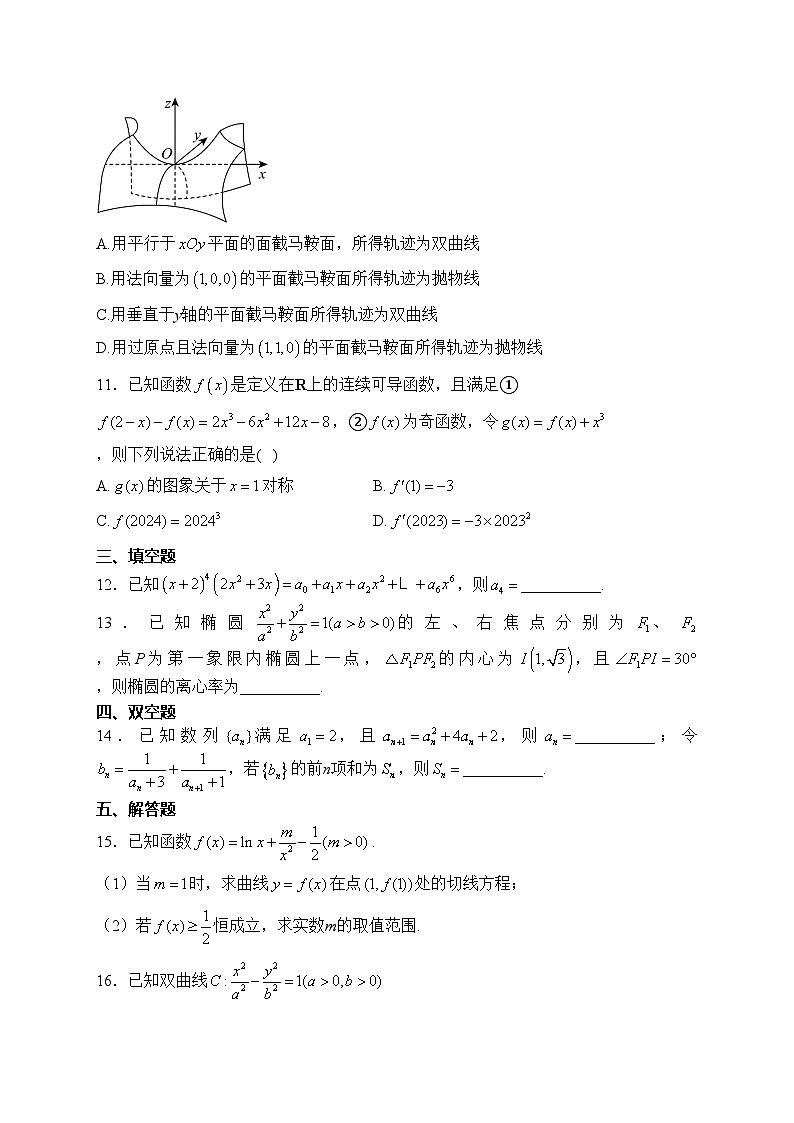 z
y
O
x
A.用平行于xOy平面的面截马鞍面，所得轨迹为双曲线
B.用法向量为(1,0,0)的平面截马鞍面所得轨迹为抛物线
C.用垂直于y轴的平面截马鞍面所得轨迹为双曲线
D.用过原点且法向量为(1,1,0)的平面截马鞍面所得轨迹为抛物线
11．已知函数f(x)是定义在R上的连续可导函数，且满足①
f(2−x)−f(x)=2x³−6x²+12x−8，②f(x)为奇函数，令g(x)=f(x)+x³
，则下列说法正确的是( )
A. g(x)的图象关于x=1对称 B. f′(1)=−3
C. f(2024)=2024³ D. f′(2023)=−3×2023²
三、填空题
12．已知(x+2)⁴(2x²+3x)=a₀+a₁x+a₂x²+L+a₆x⁶，则a₄=__________.
13．已知椭圆x²/a²+y²/b²=1(a>b>0)的左、右焦点分别为F₁、F₂
，点P为第一象限内椭圆上一点，△F₁PF₂的内心为I(1,√3)，且∠F₁PI=30°
，则椭圆的离心率为__________.
四、双空题
14．已知数列{aₙ}满足a₁=2，且aₙ₊₁=aₙ²+4aₙ+2，则aₙ=__________；令
bₙ=1/(aₙ+3)+1/(aₙ₊₁+1)，若{bₙ}的前n项和为Sₙ，则Sₙ=__________.
五、解答题
15．已知函数f(x)=ln x+m/x²−1/2(m>0).
（1）当m=1时，求曲线y=f(x)在点(1,f(1))处的切线方程；
（2）若f(x)≥1/2恒成立，求实数m的取值范围.
16．已知双曲线C:x²/a²−y²/b²=1(a>0,b>0)